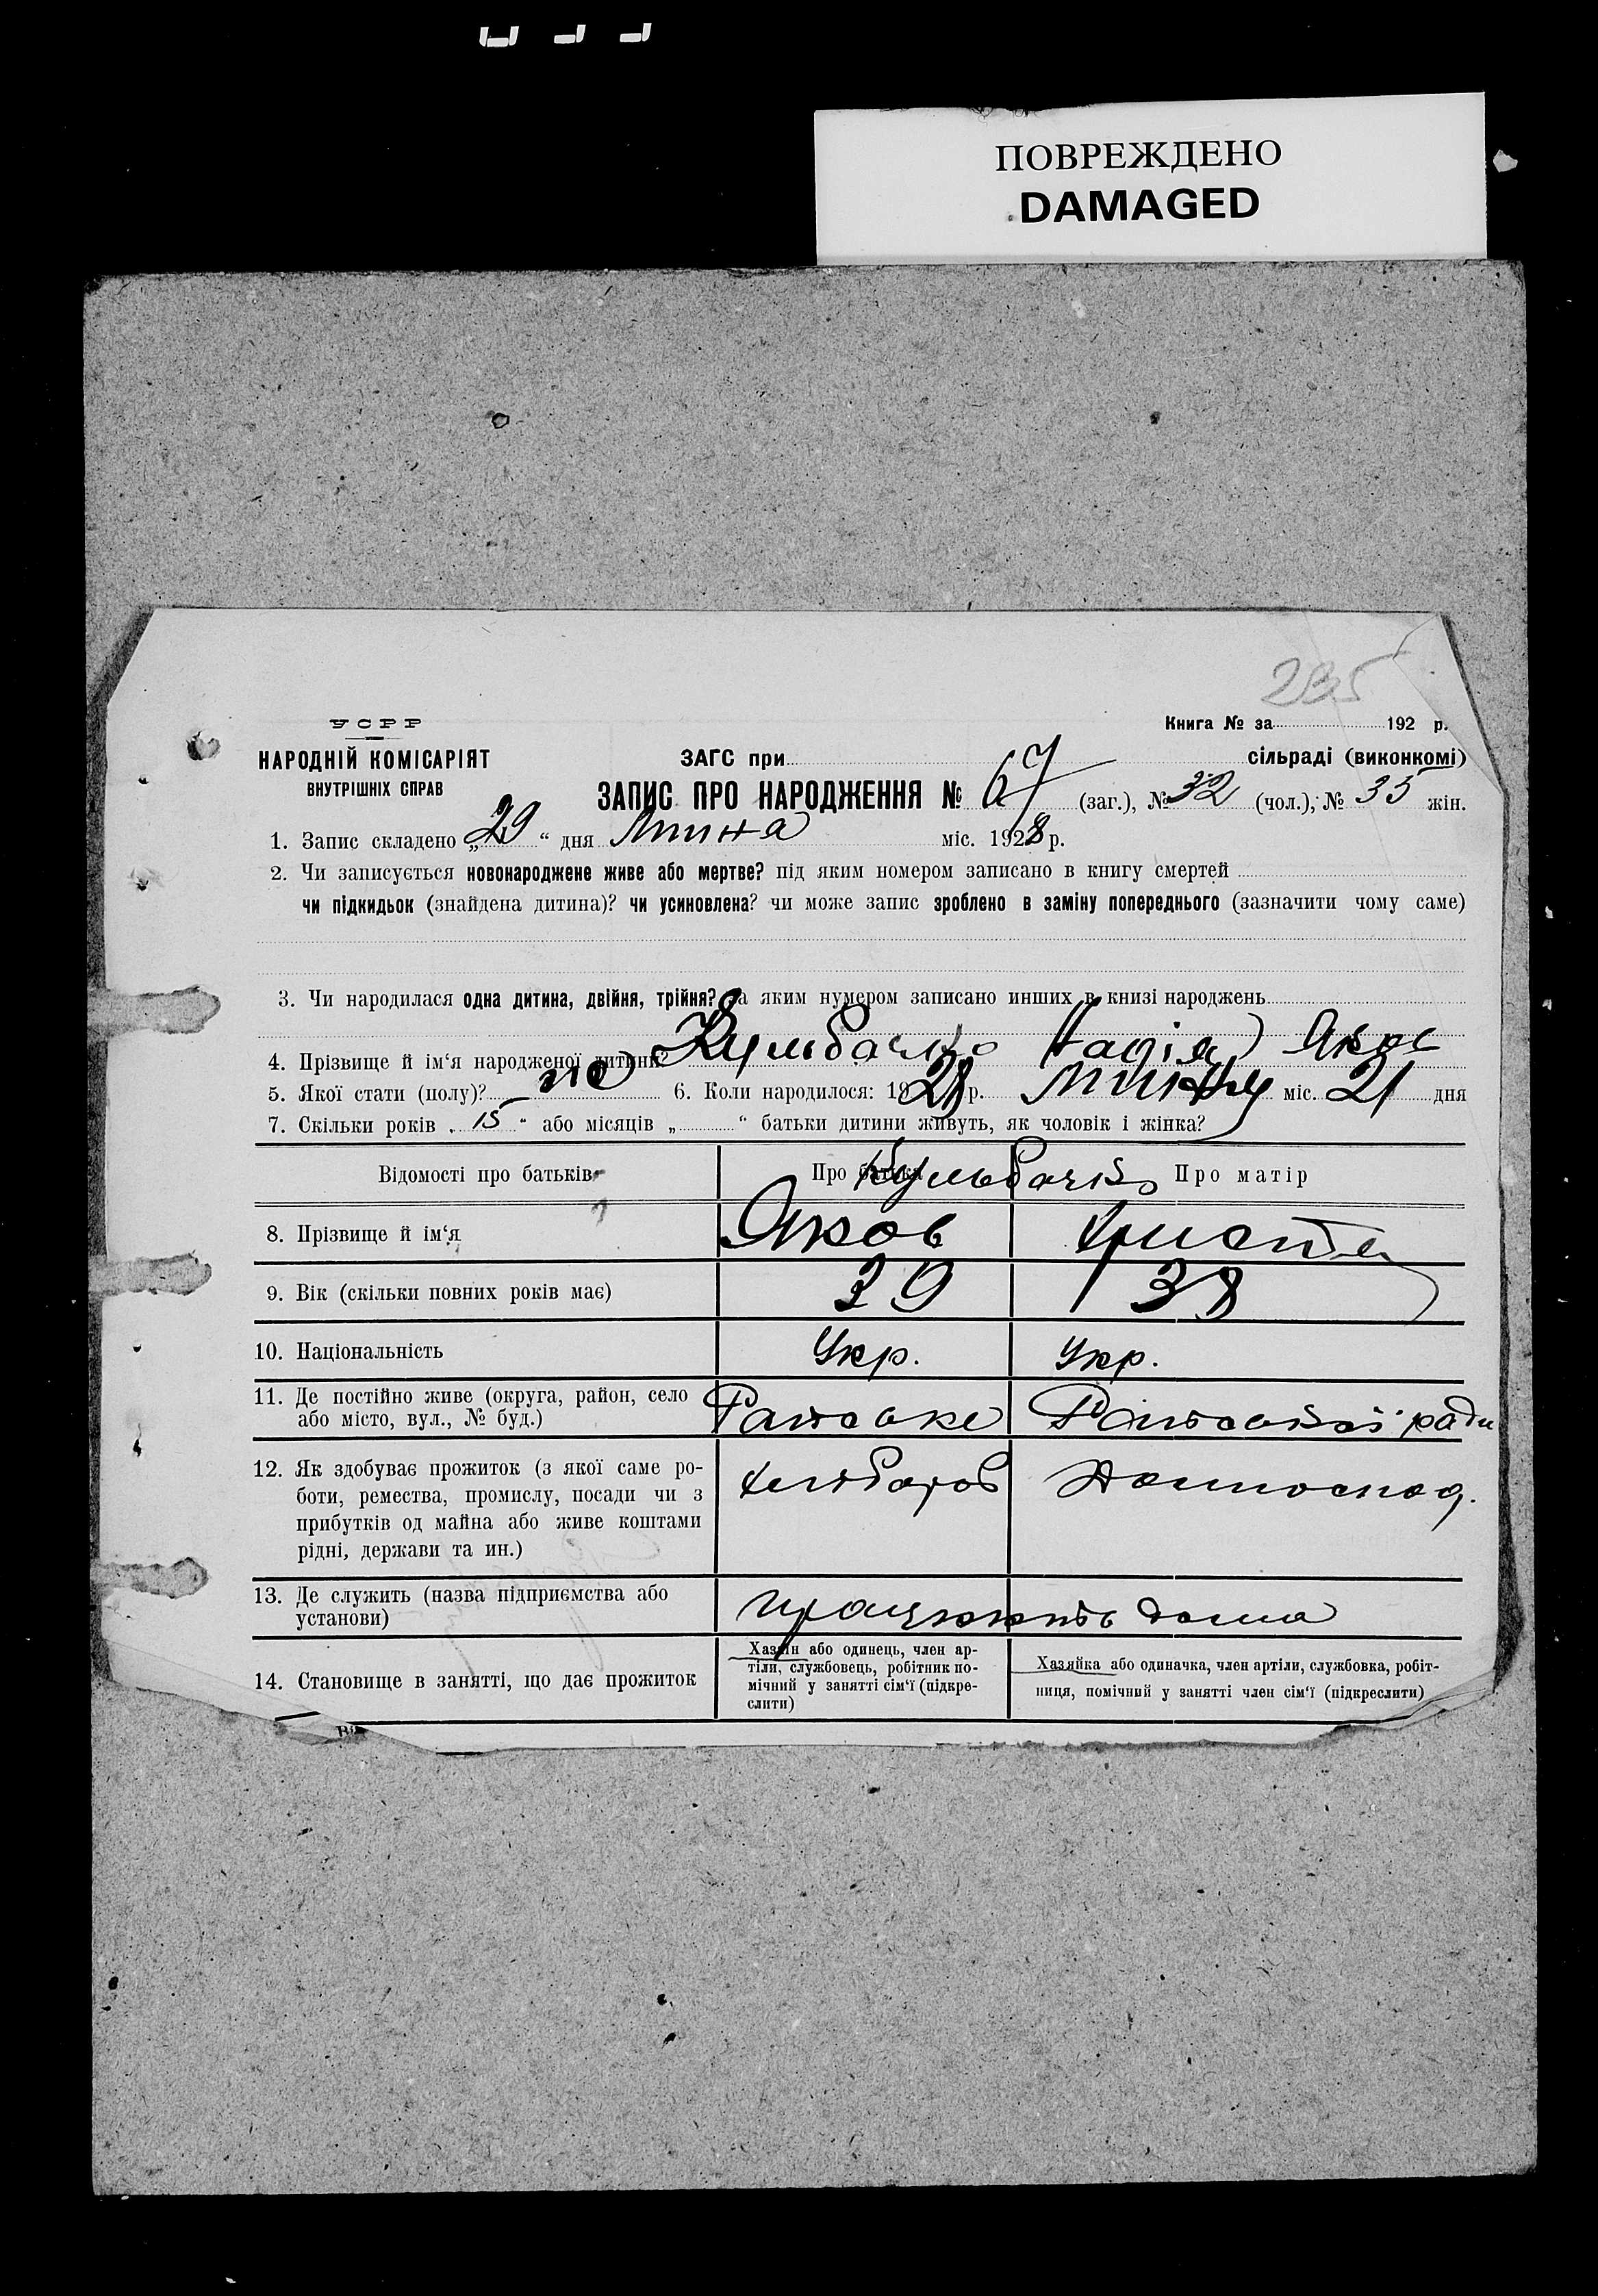 ПОВРЕЖДЕНО
DAMAGED
235
УСРР
Книга № за 192 р.
НАРОДНІЙ КОМІСАРІЯТ
ЗАГС при сільраді (виконкомі)
ВНУТРІШНІХ СПРАВ
ЗАПИС ПРО НАРОДЖЕННЯ № 67 (заг.), № 32 (чол.), № 35 жін.
1. Запис складено „29“ дня липня міс. 1928 р.
2. Чи записується новонароджене живе або мертве? під яким номером записано в книгу смертей
чи підкидьок (знайдена дитина)? чи усиновлена? чи може запис зроблено в заміну попереднього (зазначити чому саме)
3. Чи народилася одна дитина, двійня, трійня? за яким нумером записано инших в книзі народжень
4. Прізвище й ім‘я народженої дитини? Кульбачко Надія Яков
5. Якої стати (полу)? 6. Коли народилося: 1928 р. міс. 21 дня
7. Скільки років „15“ або місяців „ “ батьки дитини живуть, як чоловік і жінка?
Відомості про батьків Про батька Кульбачко Про матір
8. Прізвище й ім‘я Яков Христя
9. Вік (скільки повних років має) 39 38
10. Національність Укр. Укр.
11. Де постійно живе (округа, район, село або місто, вул., № буд.) ради
12. Як здобуває прожиток (з якої саме роботи, ремества, промислу, посади чи з прибутків од майна або живе коштами рідні, держави та ин.) хлібороб Домогоспод.
13. Де служить (назва підприємства або установи) працюють дома
14. Становище в занятті, що дає прожиток
Хазяїн або одинець, член артіли, службовець, робітник помічний у занятті сім‘ї (підкреслити)
Хазяйка або одиначка, член артіли, службовка, робітниця, помічний у занятті член сім‘ї (підкреслити)